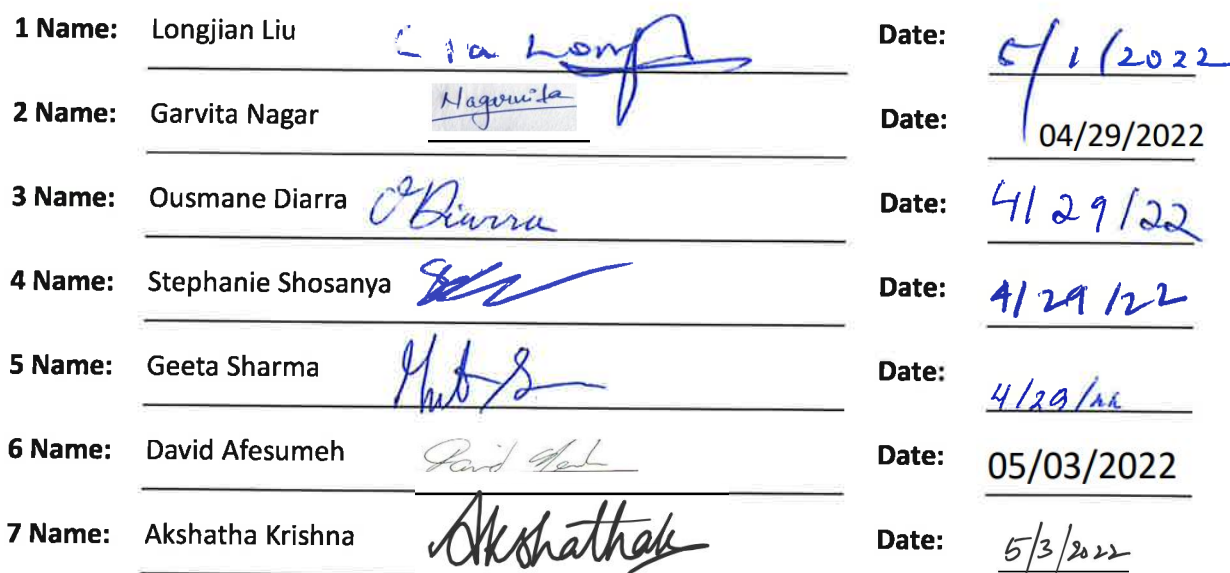 1 Name: Longjian Liu Date: 5/1/2022
2 Name: Garvita Nagar Date: 04/29/2022
3 Name: Ousmane Diarra ODiarra Date: 4/29/22
4 Name: Stephanie Shosanya Date: 4/29/22
5 Name: Geeta Sharma Date: 4/29/22
6 Name: David Afesumeh David Date: 05/03/2022
7 Name: Akshatha Krishna Akshathak Date: 5/3/2022